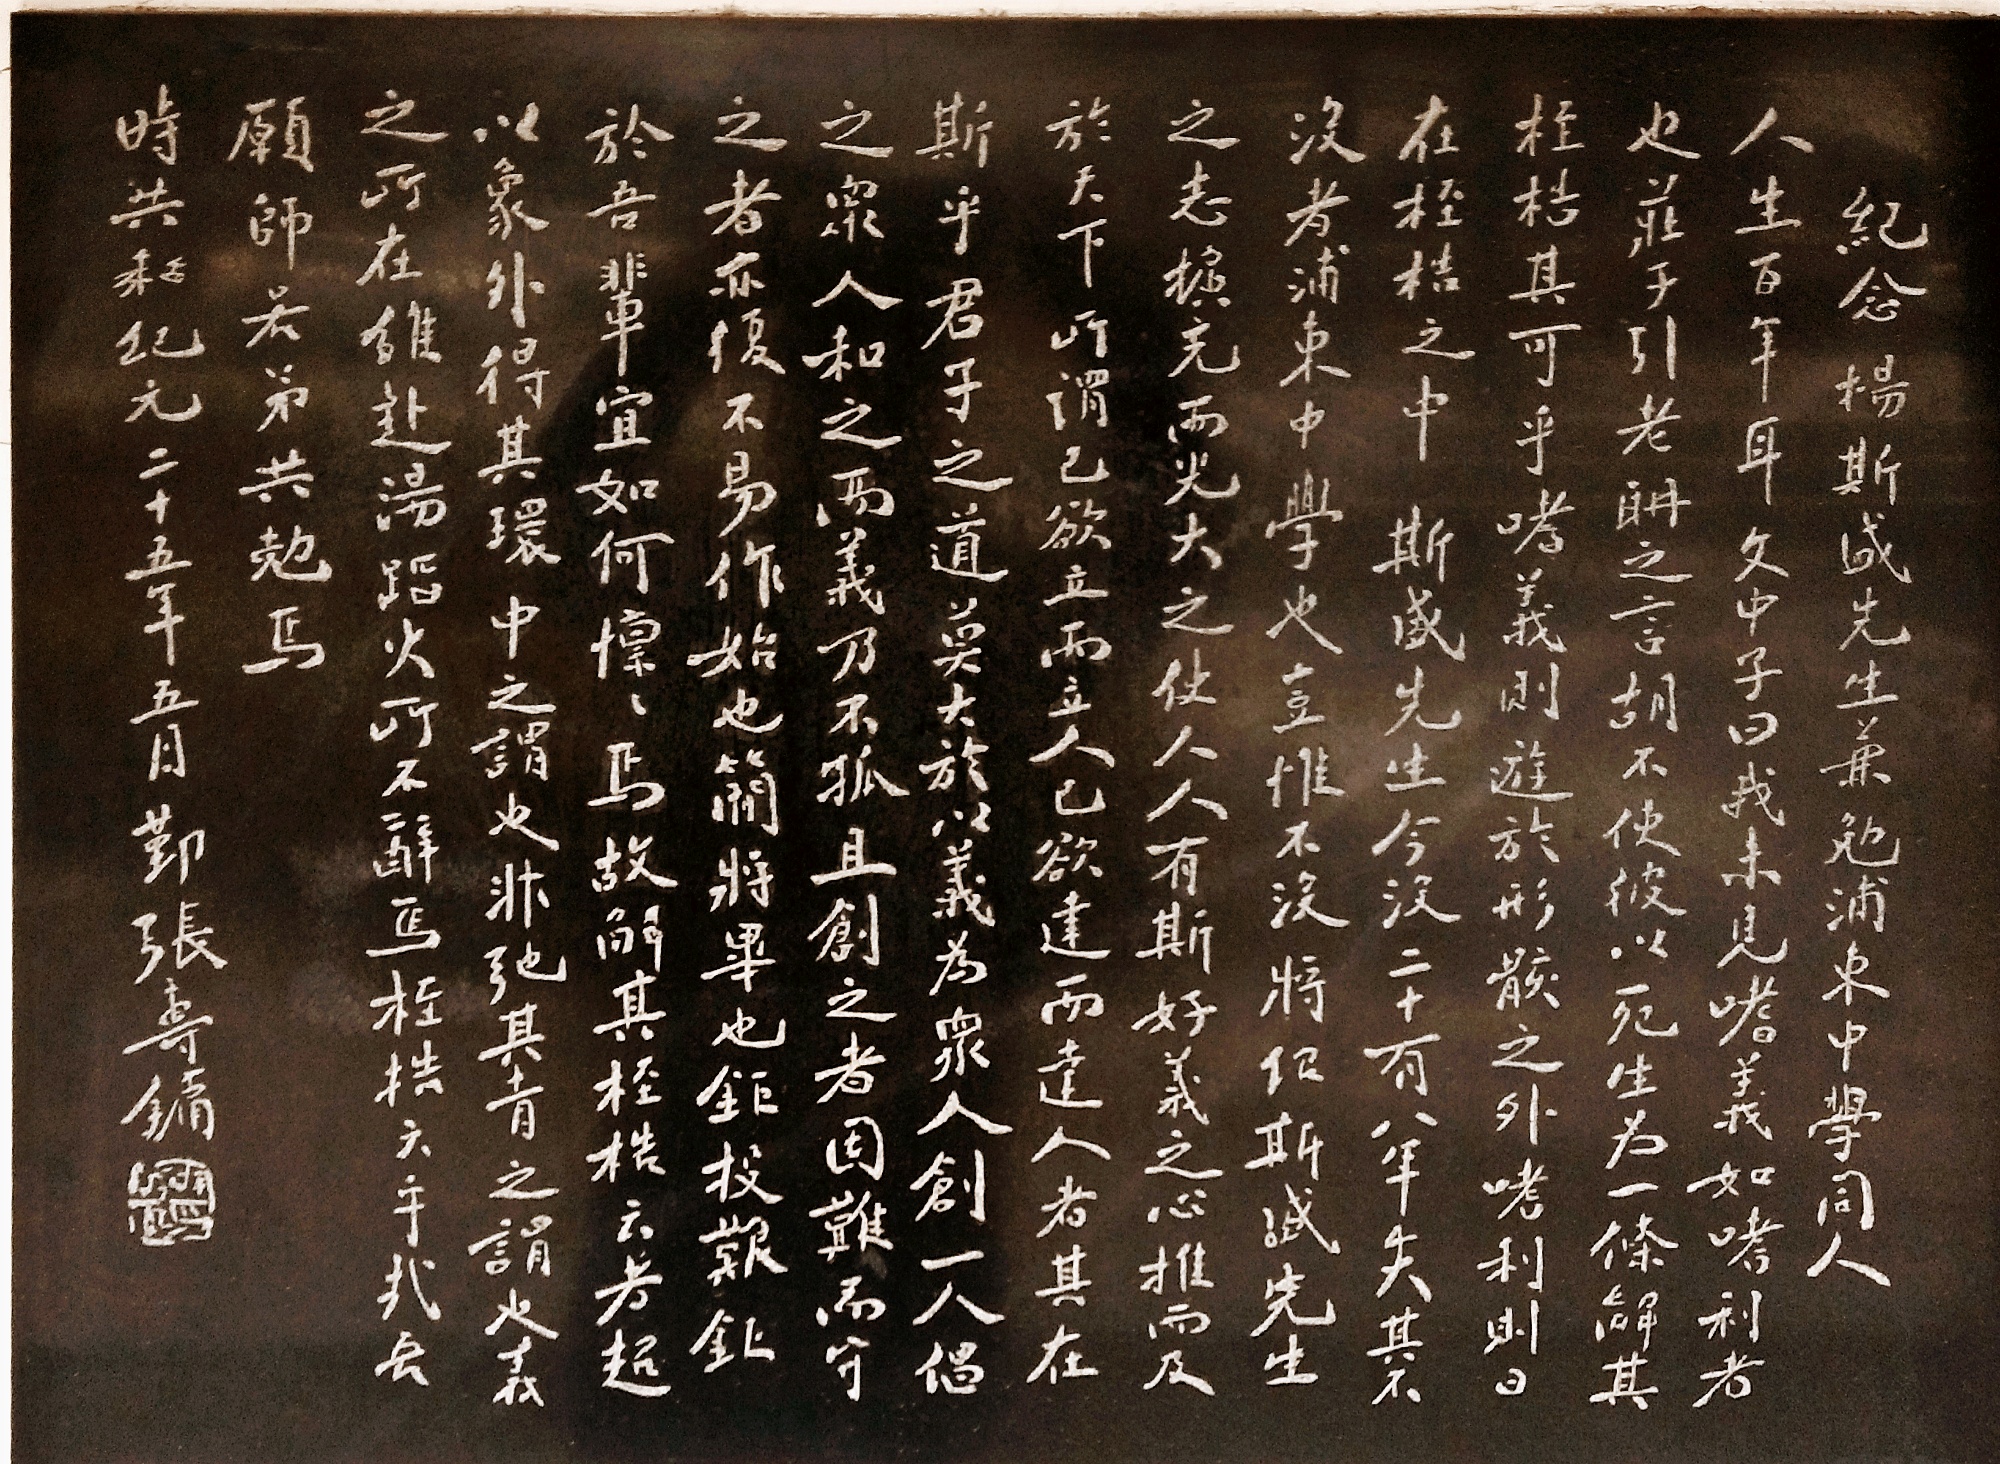 紀念楊斯盛先生兼勉浦東中學同人
人生百年耳文中子曰我未見嗜義如嗜利者
也莊子引老聃之言胡不使彼以死生為一條解其
桎梏其可乎嗜義則遊於形骸之外嗜利則日
在桎梏之中斯盛先生今沒二十有八年矣其不
沒者浦東中學也豈惟不沒將紹斯盛先生
之志擴充而光大之使人人有斯好義之心推而及
於天下所謂己欲立而立人己欲達而達人者其在
斯乎君子之道莫大於以義為眾人創一人倡
之眾人和之而義乃不孤且創之者固難而守
之者亦復不易作始也簡將畢也鉅投艱鉅
於吾輩宜如何懍懍焉故解其桎梏云者超
以象外得其環中之謂也非弛其負之謂也義
之所在雖赴湯蹈火所不辭焉桎梏云乎哉吾
願師若弟共勉焉
時共和紀元二十五年五月鄞張壽鏞